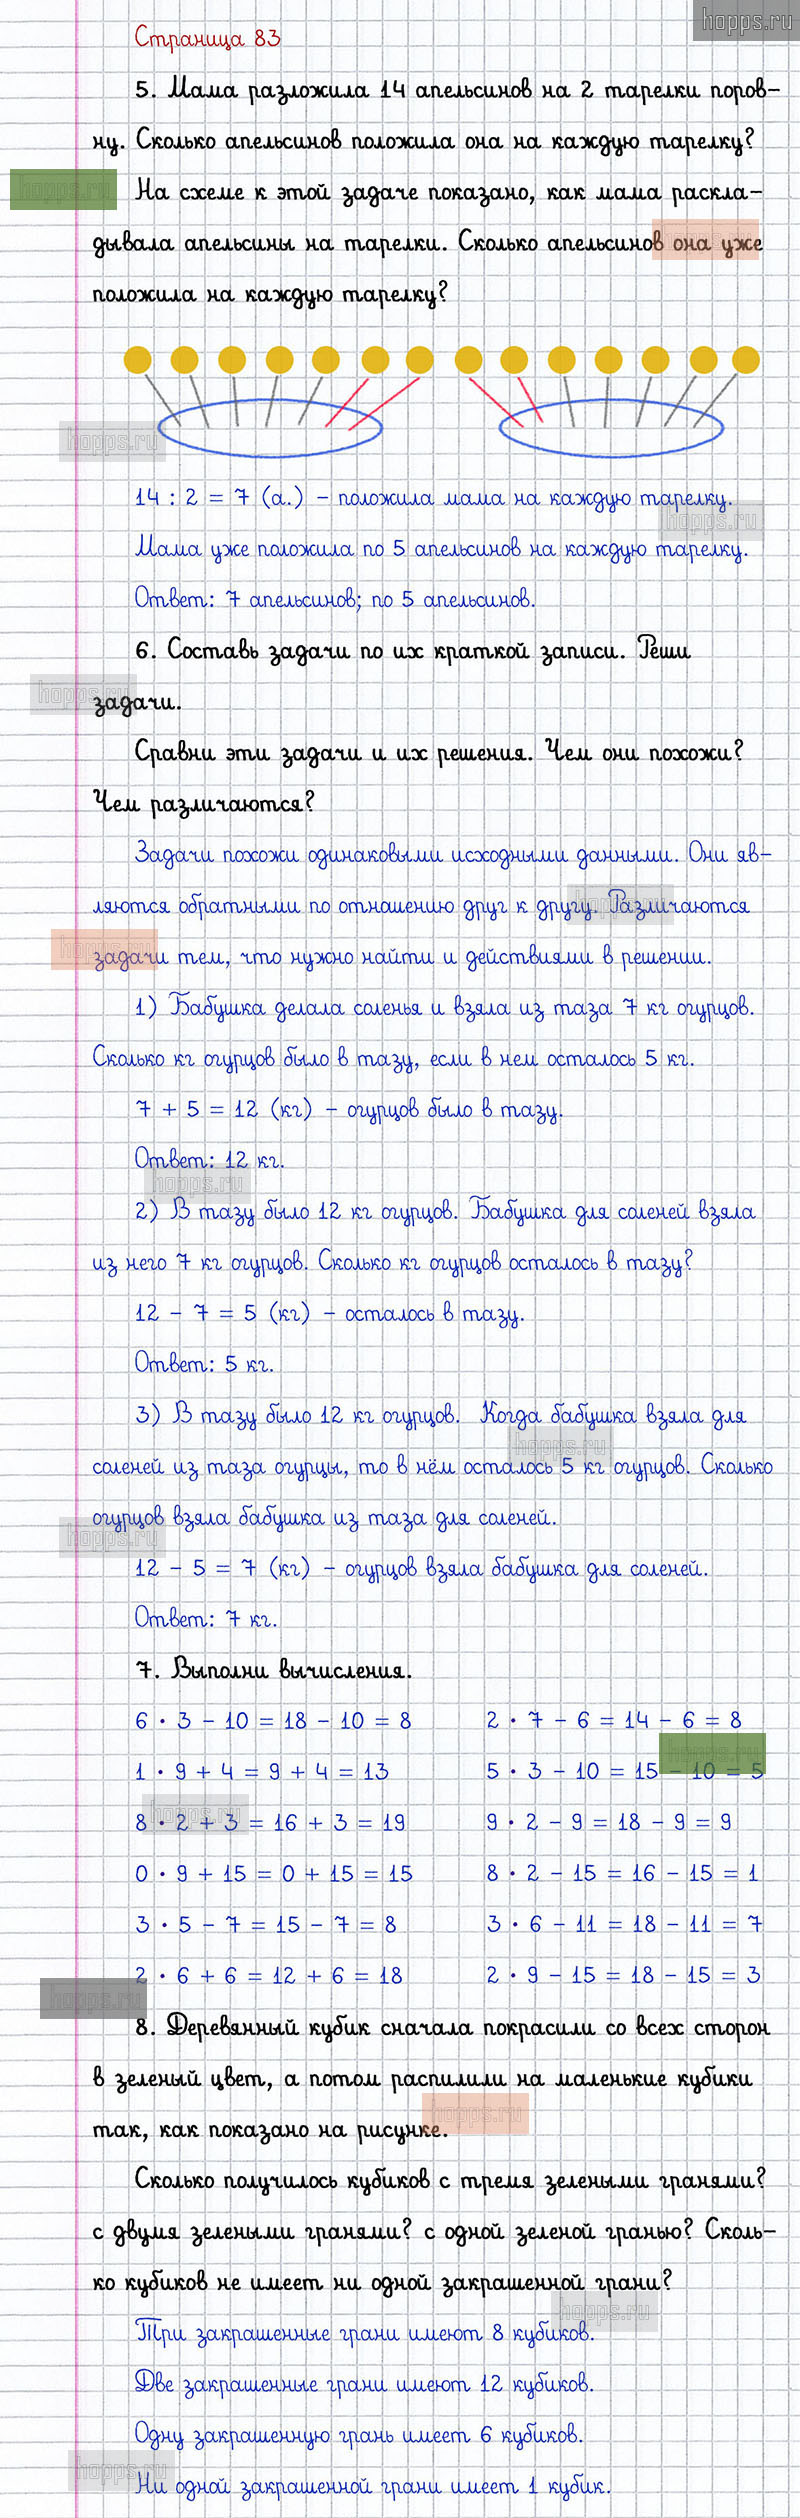 hopps.ru
Страница 83
5. Мама разложила 14 апельсинов на 2 тарелки поров-
ну. Сколько апельсинов положила она на каждую тарелку?
На схеме к этой задаче показано, как мама раскла-
дывала апельсины на тарелки. Сколько апельсинов она уже
положила на каждую тарелку?
14 : 2 = 7 (а.) – положила мама на каждую тарелку.
Мама уже положила по 5 апельсинов на каждую тарелку.
Ответ: 7 апельсинов; по 5 апельсинов.
6. Составь задачи по их краткой записи. Реши
задачи.
Сравни эти задачи и их решения. Чем они похожи?
Чем различаются?
Задачи похожи одинаковыми исходными данными. Они яв-
ляются обратными по отношению друг к другу. Различаются
задачи тем, что нужно найти и действиями в решении.
1) Бабушка делала соленья и взяла из таза 7 кг огурцов.
Сколько кг огурцов было в тазу, если в нем осталось 5 кг.
7 + 5 = 12 (кг) – огурцов было в тазу.
Ответ: 12 кг.
2) В тазу было 12 кг огурцов. Бабушка для солений взяла
из него 7 кг огурцов. Сколько кг огурцов осталось в тазу?
12 – 7 = 5 (кг) – осталось в тазу.
Ответ: 5 кг.
3) В тазу было 12 кг огурцов. Когда бабушка взяла для
соленей из таза огурцы, то в нём осталось 5 кг огурцов. Сколько
огурцов взяла бабушка из таза для соленей.
12 – 5 = 7 (кг) – огурцов взяла бабушка для соленей.
Ответ: 7 кг.
7. Выполни вычисления.
6 · 3 – 10 = 18 – 10 = 8 2 · 7 – 6 = 14 – 6 = 8
1 · 9 + 4 = 9 + 4 = 13 5 · 3 – 10 = 15 – 10 = 5
8 · 2 + 3 = 16 + 3 = 19 9 · 2 – 9 = 18 – 9 = 9
0 · 9 + 15 = 0 + 15 = 15 8 · 2 – 15 = 16 – 15 = 1
3 · 5 – 7 = 15 – 7 = 8 3 · 6 – 11 = 18 – 11 = 7
2 · 6 + 6 = 12 + 6 = 18 2 · 9 – 15 = 18 – 15 = 3
8. Деревянный кубик сначала покрасили со всех сторон
в зеленый цвет, а потом распилили на маленькие кубики
так, как показано на рисунке.
Сколько получилось кубиков с тремя зелеными гранями?
с двумя зелеными гранями? с одной зеленой гранью? Сколь-
ко кубиков не имеет ни одной закрашенной грани?
Три закрашенные грани имеют 8 кубиков.
Две закрашенные грани имеют 12 кубиков.
Одну закрашенную грань имеет 6 кубиков.
Ни одной закрашенной грани имеет 1 кубик.